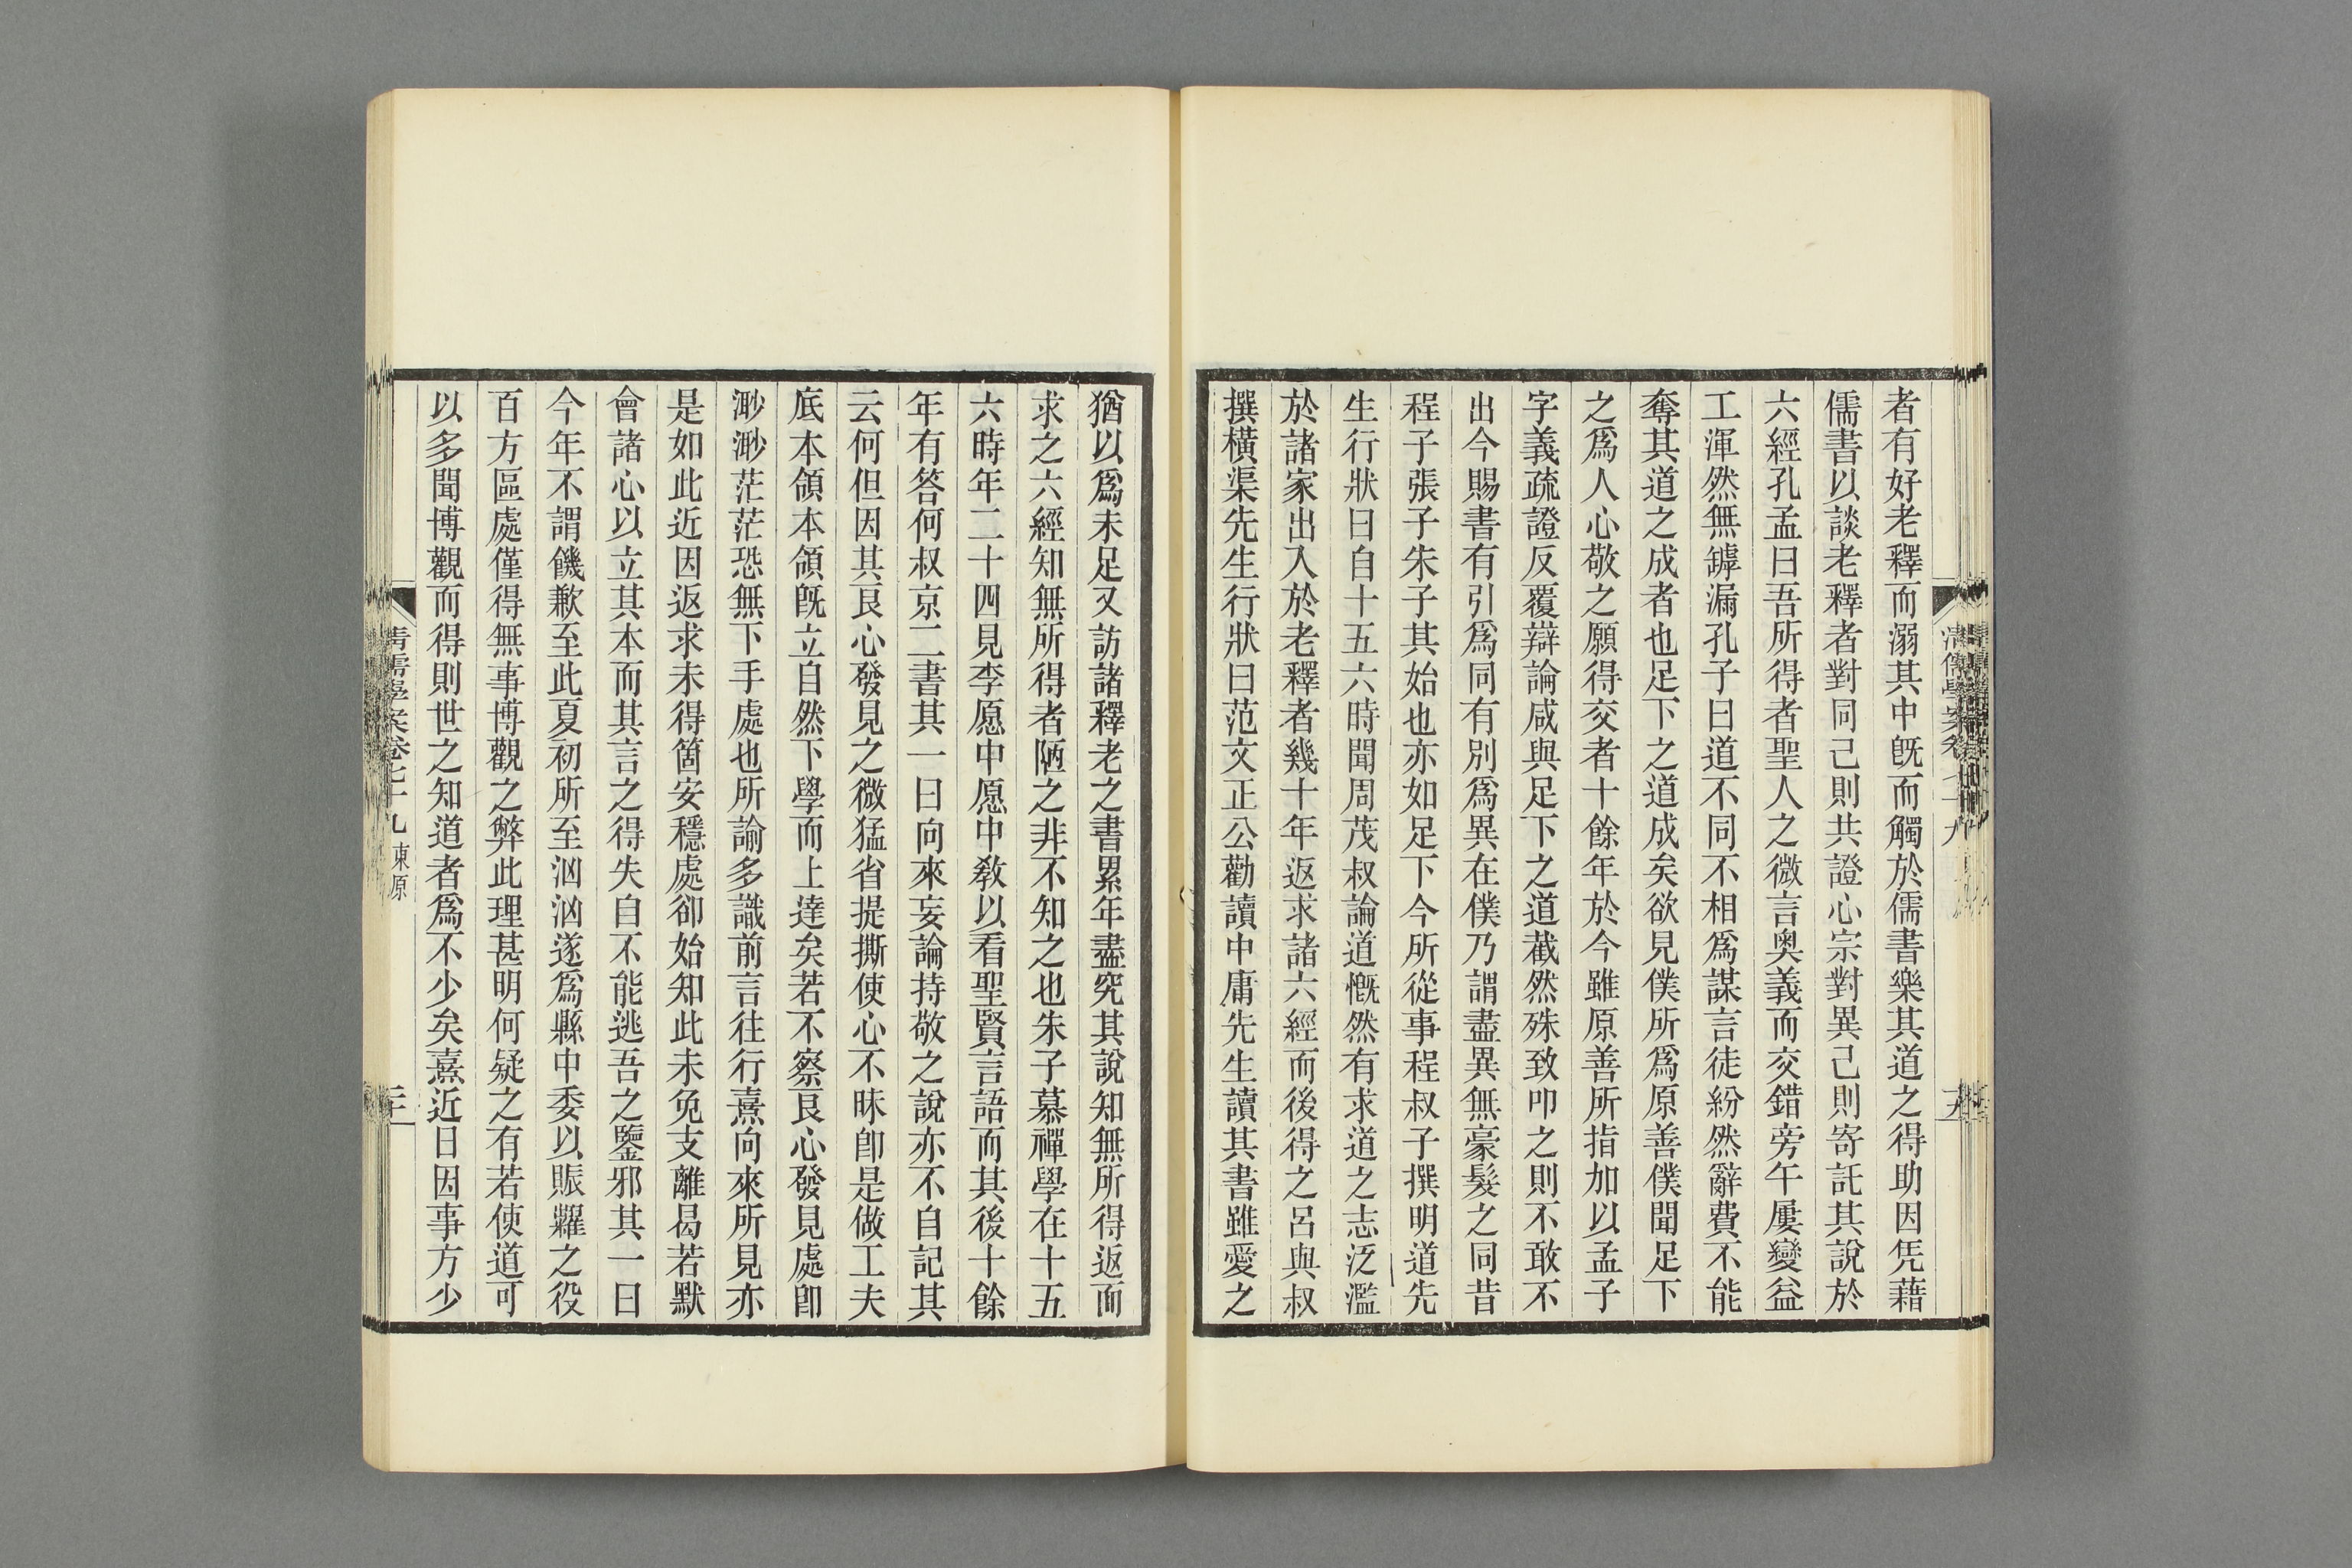 者有好老釋而溺其中旣而觸於儒書樂其道之得助因凭藉
儒書以談老釋者對同己則共證心宗對異己則寄託其說於
六經孔孟曰吾所得者聖人之微言奧義而交錯旁午屢變益
工渾然無罅漏孔子曰道不同不相爲謀言徒紛然辭費不能
奪其道之成者也足下之道成矣欲見僕所爲原善僕聞足下
之爲人心敬之願得交者十餘年於今雖原善所指加以孟子
字義疏證反覆辯論咸與足下之道截然殊致叩之則不敢不
出今賜書有引爲同有別爲異在僕乃謂盡異無豪髮之同昔
程子張子朱子其始也亦如足下今所從事程叔子撰明道先
生行狀曰自十五六時聞周茂叔論道慨然有求道之志泛濫
於諸家出入於老釋者幾十年返求諸六經而後得之呂與叔
撰橫渠先生行狀曰范文正公勸讀中庸先生讀其書雖愛之
猶以爲未足又訪諸釋老之書累年盡究其說知無所得返而
求之六經知無所得者陋之非不知之也朱子慕禪學在十五
六時年二十四見李愿中愿中敎以看聖賢言語而其後十餘
年有答何叔京二書其一曰向來妄論持敬之說亦不自記其
云何但因其良心發見之微猛省提撕使心不昧卽是做工夫
底本領本領旣立自然下學而上達矣若不察良心發見處卽
渺渺茫茫恐無下手處也所諭多識前言往行熹向來所見亦
是如此近因返求未得箇安穩處卻始知此未免支離曷若默
會諸心以立其本而其言之得失自不能逃吾之鑒邪其一曰
今年不謂饑歉至此夏初所至洶洶遂爲縣中委以賑糶之役
百方區處僅得無事博觀之弊此理甚明何疑之有若使道可
以多聞博觀而得則世之知道者爲不少矣熹近日因事方少
清儒學案卷七十九 東原